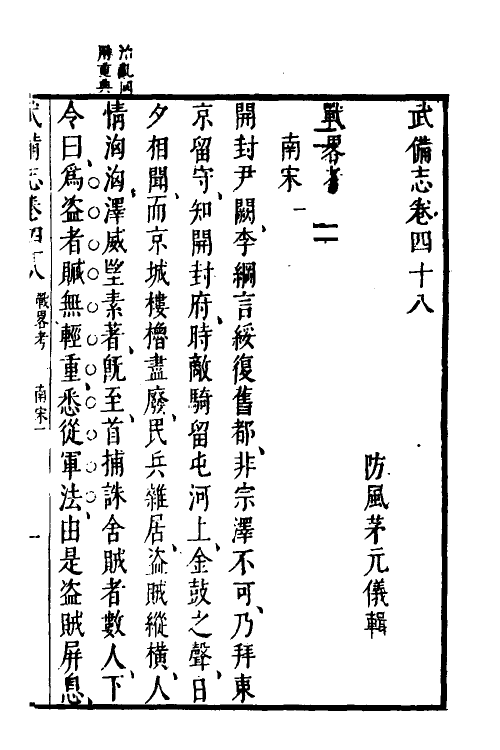 武備志卷四十八
防風茅元儀輯
戰畧考
南宋一
開封尹闕李綱言綏復舊都非宗澤不可乃拜東
京留守知開封府時敵騎留屯河上金鼓之聲日
夕相聞而京城樓櫓盡廢民兵雜居盜賊縱橫人
情洶洶澤威望素著既至首捕誅舍賊者數人下
令曰為盜者贓無輕重悉從軍法由是盜賊屏息
治亂國
用重典
武備志卷四十八 戰畧考 南宋一 一